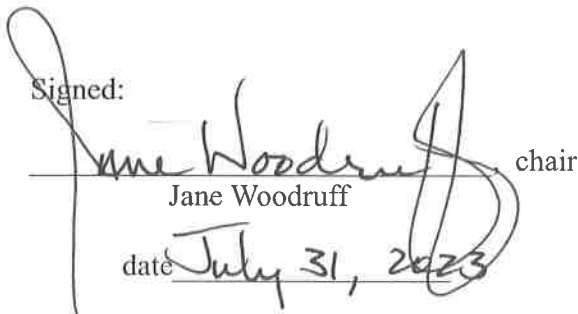 Signed:
Jane Woodruff, chair
Jane Woodruff
date July 31, 2023